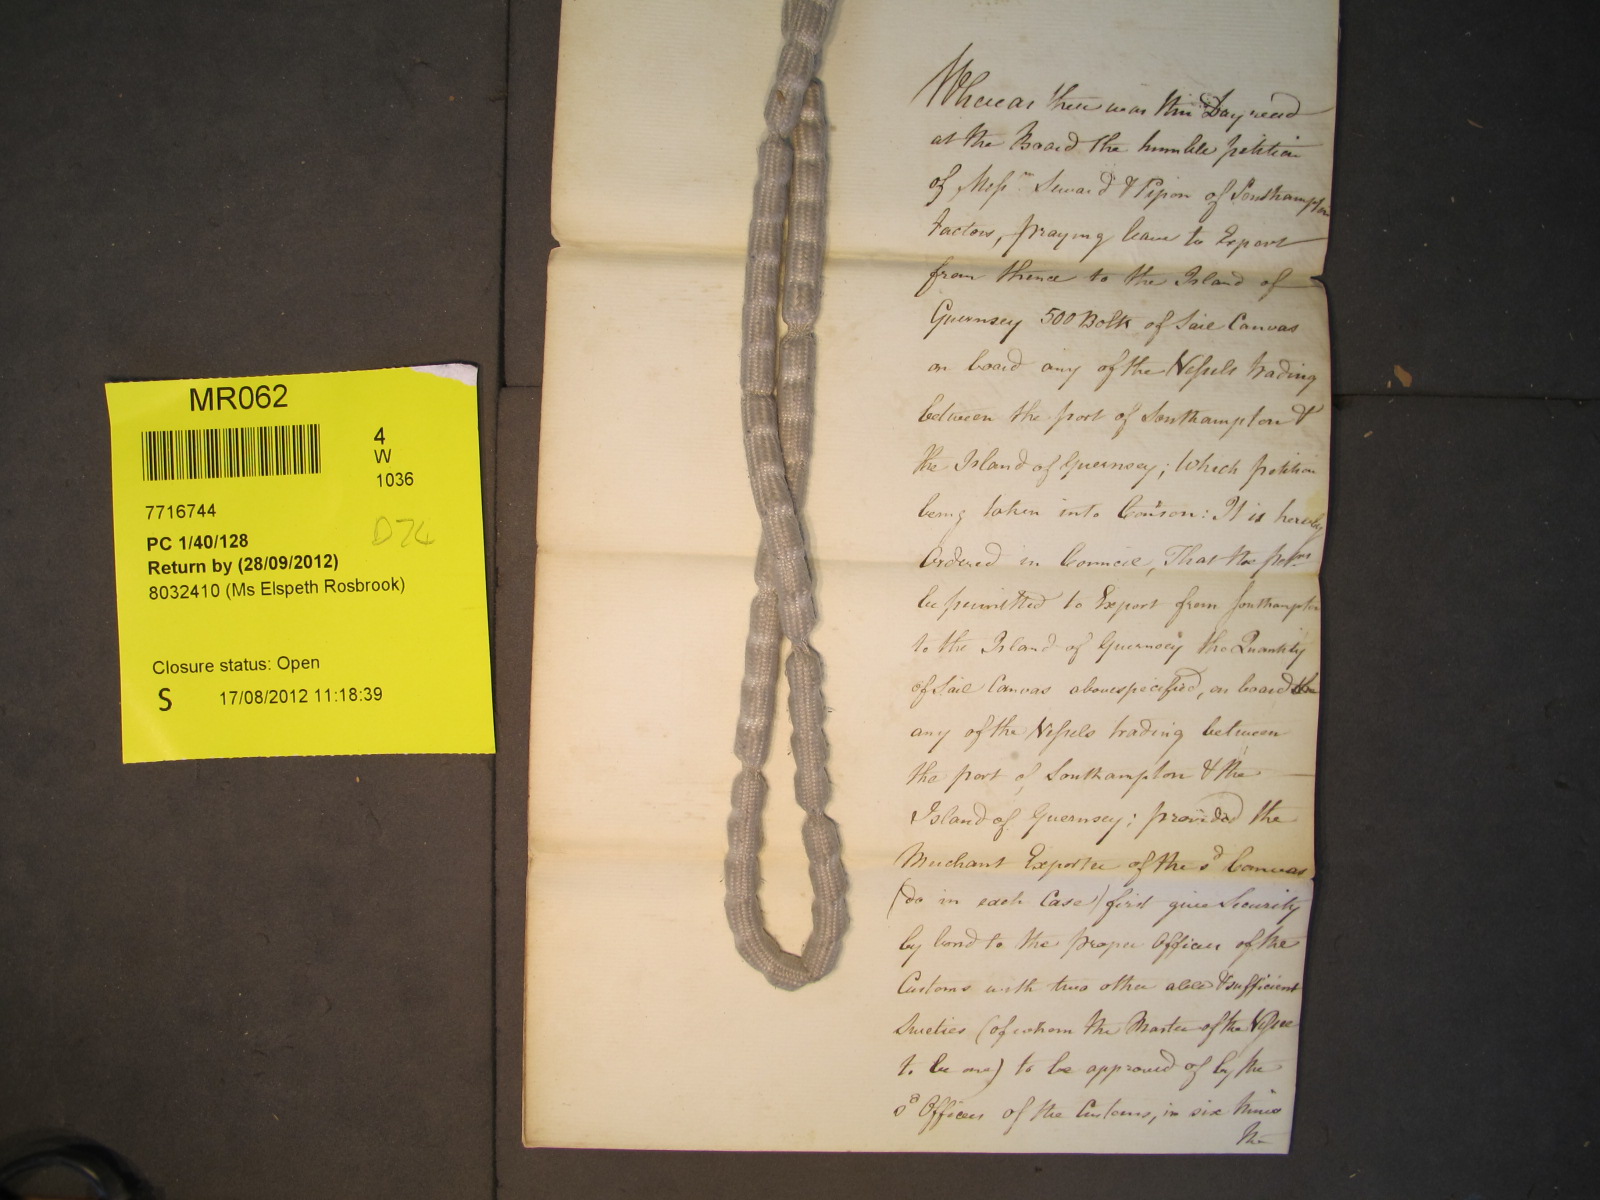 MR062
4
W
1036
7716744
D74
PC 1/40/128
Return by (28/09/2012)
8032410 (Ms Elspeth Rosbrook)
Closure status: Open
S 17/08/2012 11:18:39
Whereas there was this Day read
at the Board the humble petition
of Messrs. Seward & Pipon of Southampton
Factors, praying leave to Export
from thence to the Island of
Guernsey 500 Bolts of Sail Canvas
on board any of the Vessels trading
between the port of Southampton &
the Island of Guernsey; Which petition
being taken into Conson: It is hereby
Ordered in Council, That the petrs
be permitted to Export from Southampton
to the Island of Guernsey the Quantity
of Sail Canvas abovespecified, on board
any of the Vessels trading between
the port of Southampton & the
Island of Guernsey; provided the
Merchant Exporter of the sd Canvas
(do in each Case) first give Security
by bond to the proper Officers of the
Customs with two other able & sufficient
Sureties (of whom the Master of the Vessel
to be one) to be approved of by the
sd Officers of the Customs, in six times
the